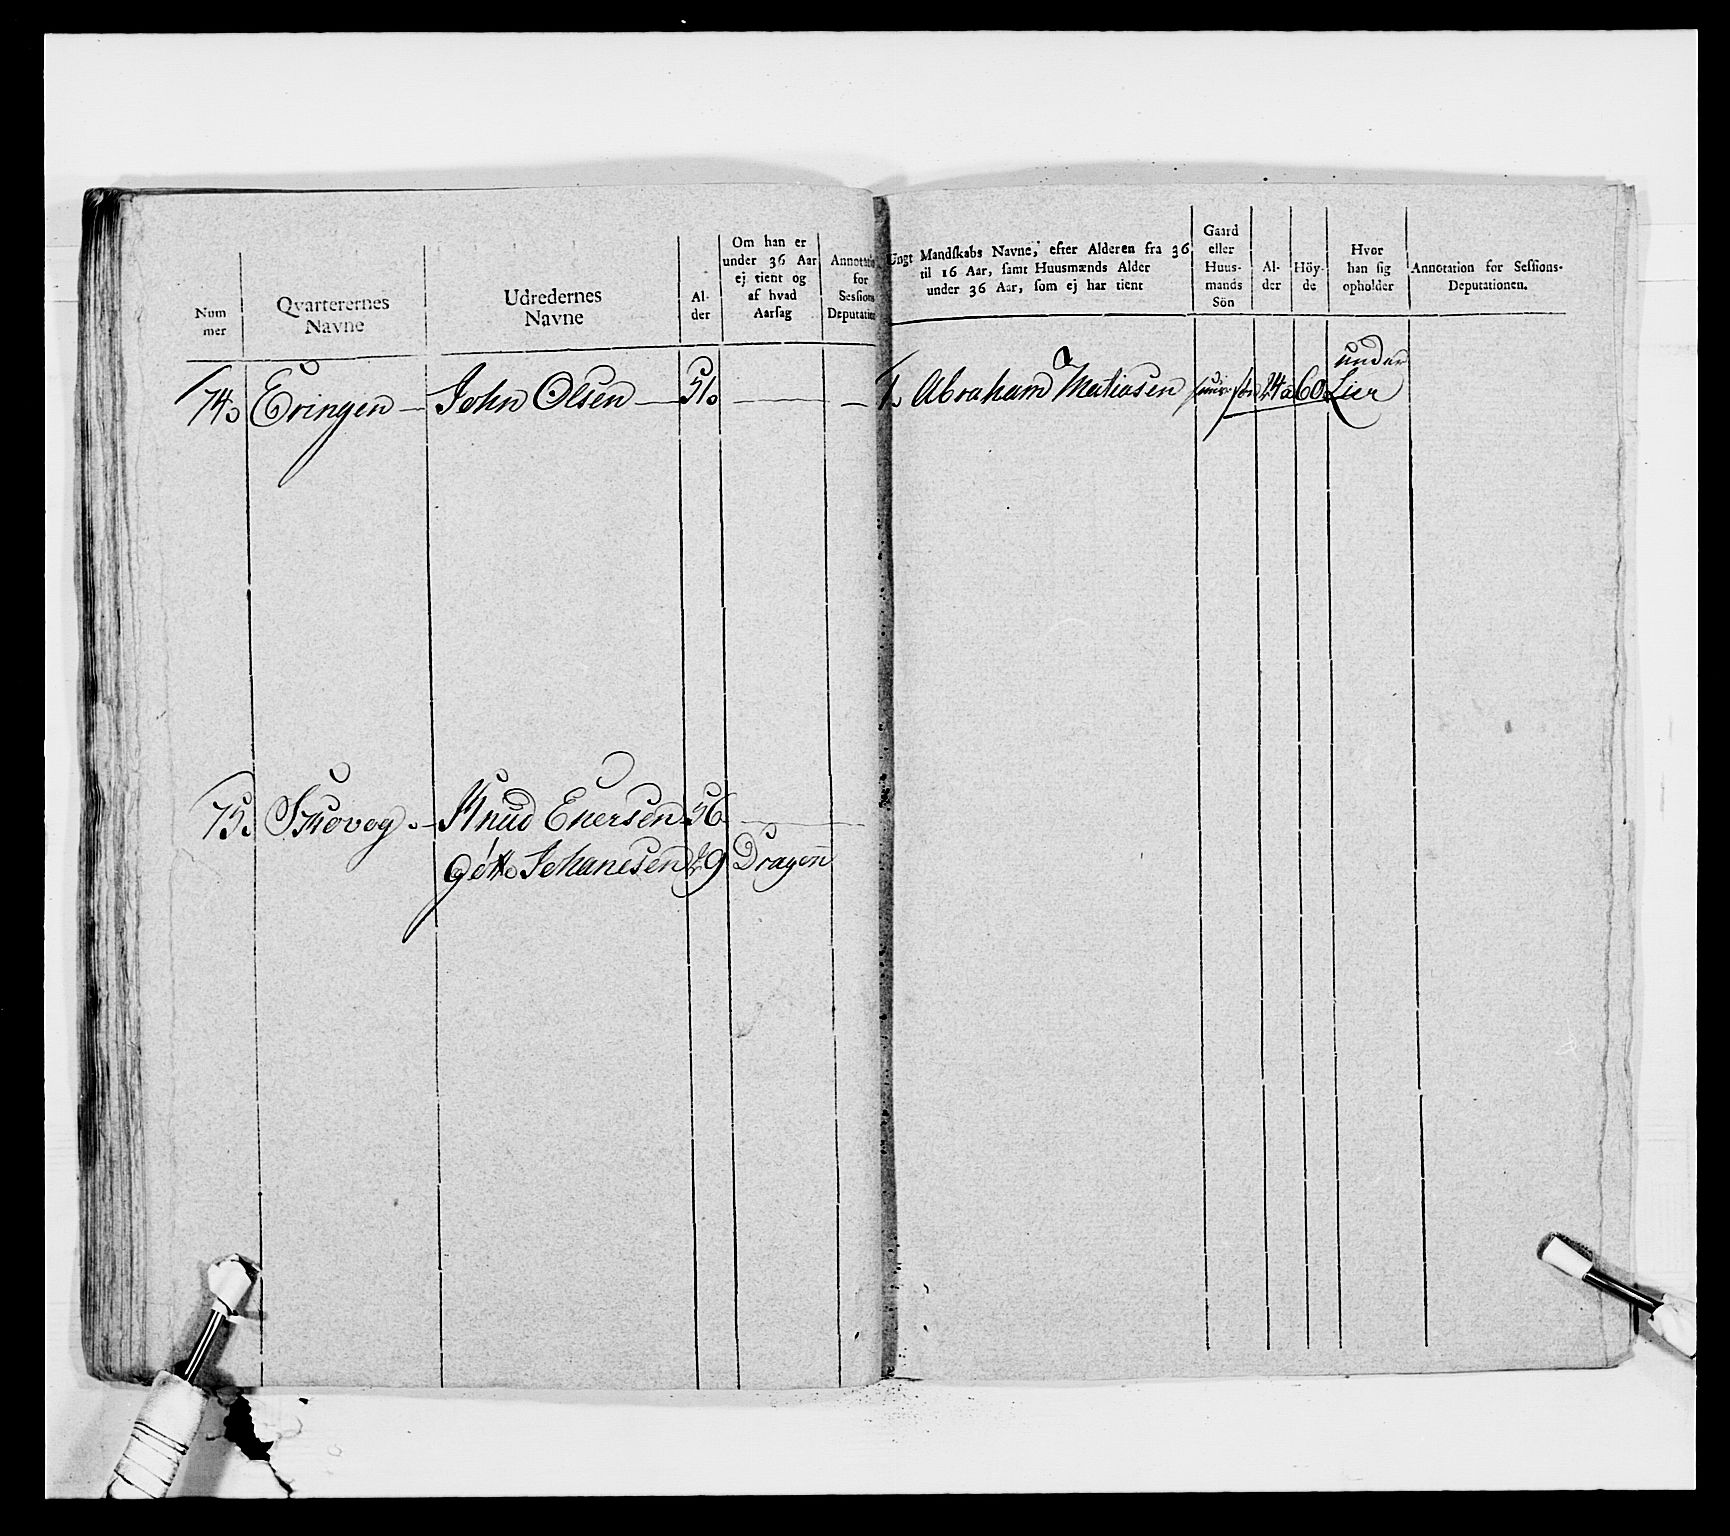 Num
mer
Qvarterernes
Navne
Udredernes
Navne
Al-
der
Om han er
under 36 Aar
ej tient og
af hvad
Aarsag
Annotatio
for
Sessions
Deputation
Ungt Mandskabs Navne, efter Alderen fra 36
til 16 Aar, samt Huusmænds Alder
under 36 Aar, som ej har tient
Gaard
eller
Huus-
mands
Sön
Al-
der
Höy-
de
Hvor
han sig
opholder
Annotation for Sessions-
Deputationen.
74. Eringen — John Olsen — 51. — — 1. Abraham Matiasen 24 a 60. under
Lier
75. Skovog. — Knud Enersen 56 —
Johanesen 29 Dragon